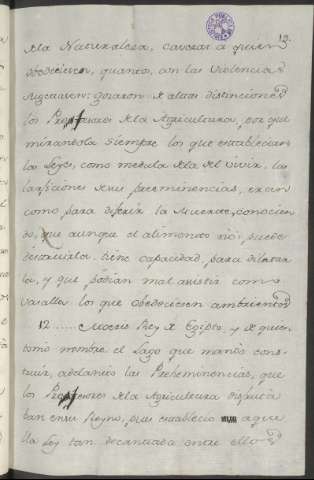 12.
de la Naturaleza, caveras a quien
obedecieron, quantos, con las violencias
sugetaron: gozaron de altas distinciones
los Profesores de la Agricultura, por que
mirandola siempre los que establecian
las Leyes, como medula de la del vivir, las
de sus preeminencias, eran
como para diferir la Muerte, conocien
do, que aunque el alimento no puede
desterrarla, tiene capacidad para dilatar
la, y que podian mal asistir como
vasallos los que obedeciesen ambrientos
12 ..... Moeris Rey de Egipto, y de quien
tomó nombre el Lago que mandó cons-
truir, adelantó las Preheminencias, que
los Profesores de la Agricultura disfruta
ban en su Reyno, pues establecio aque
lla Ley tan decantada entre ellos